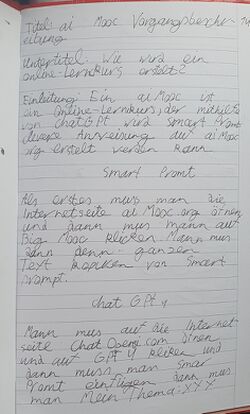 Titel: ai Mooc Vorgangsbeschr-
eibung
Untertitel: Wie wird ein
online-Lernkurs erstellt?
Einleitung: Ein ai Mooc ist
ein Online-Lernkurs, der mithilfe
von ChatGPT wird smart Promt
Anweisung auf ai Mooc
org erstellt werden kann
Smart Promt
Als erstes mus man die
Internetseite ai Mooc.org öfnen
und dann mus mann auf
Big Mooc klicken Mann mus
dann denn ganzen
Text kopiren von Smart
prompt.
Chat GPt 4
Mann mus auf die Internet-
seite Chat Openai.com öfnen
und auf GPt 4 klicken und
dann muss man smar
Promt einfügen dann mus
man Mein Thema: XYX